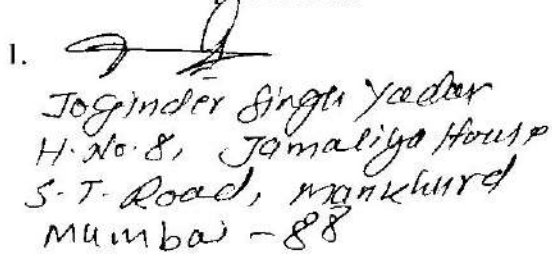 1.
Joginder Singh Yadav
H. No. 8, Jamaliya House
S. T. Road, Mankhurd
Mumbai - 88